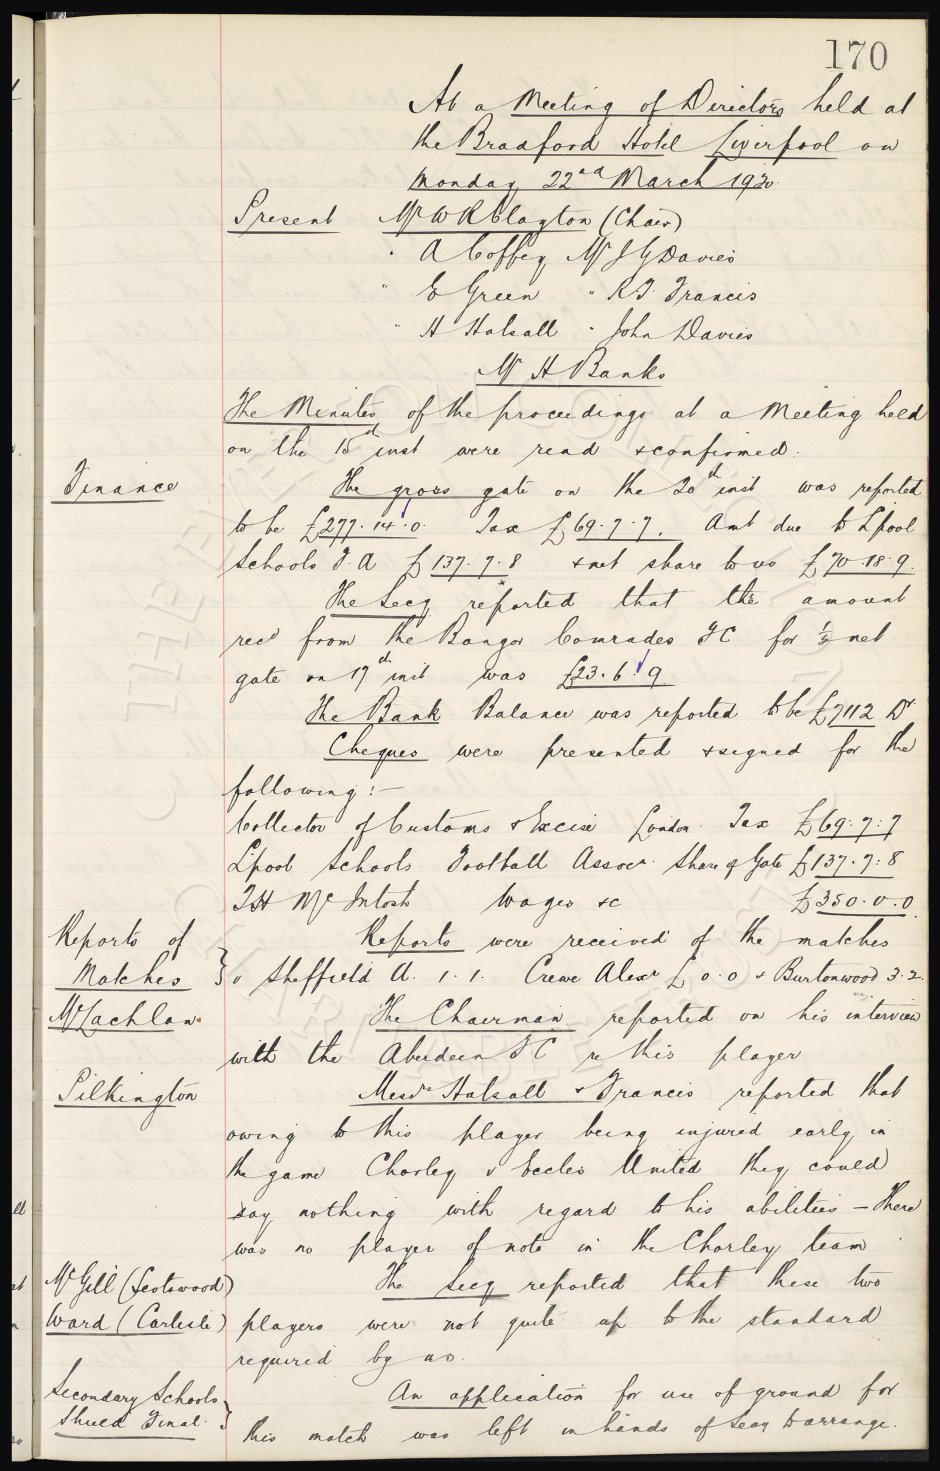 170
At a Meeting of Directors held at
the Bradford Hotel Liverpool on
Monday 22nd March 1920.
Present Mr W R Clayton (Chair)
" A Coffey Mr J G Davies
" E Green " R J Francis
" H Halsall " John Davies
Mr H Banks
The Minutes of the proceedings at a Meeting held
on the 15th inst were read & confirmed.
Finance The gross gate on the 20th inst was reported
to be £277.14.0. Tax £69.7.7. Amt due to L'pool
Schools F.A £137.7.8 & net share to us £70.18.9.
The Secy reported that the amount
recd from the Bangor Comrades FC for ½ net
gate on 17th inst was £23.6.9
The Bank Balance was reported to be £7112 Dr
Cheques were presented & signed for the
following:—
Collector of Customs & Excise London. Tax £69.7.7
L'pool Schools Football Assocn. Share of Gate £137.7.8
T H McIntosh Wages &c £350.0.0.
Reports of Reports were received of the matches
Matches } v Sheffield U. 1.1. Crewe Alexr L 0.0 & Burtonwood 3.2.
McLachlan. The Chairman reported on his interview
with the Aberdeen FC re this player
Pilkington Messrs Halsall & Francis reported that
owing to this player being injured early in
the game Chorley v Eccles United they could
say nothing with regard to his abilities — There
was no player of note in the Chorley team
McGill (Scotswood) The Secy reported that these two
Ward (Carlisle) players were not quite up to the standard
required by us.
Secondary Schools An application for use of ground for
Shield Final. } this match was left in hands of Secy to arrange.